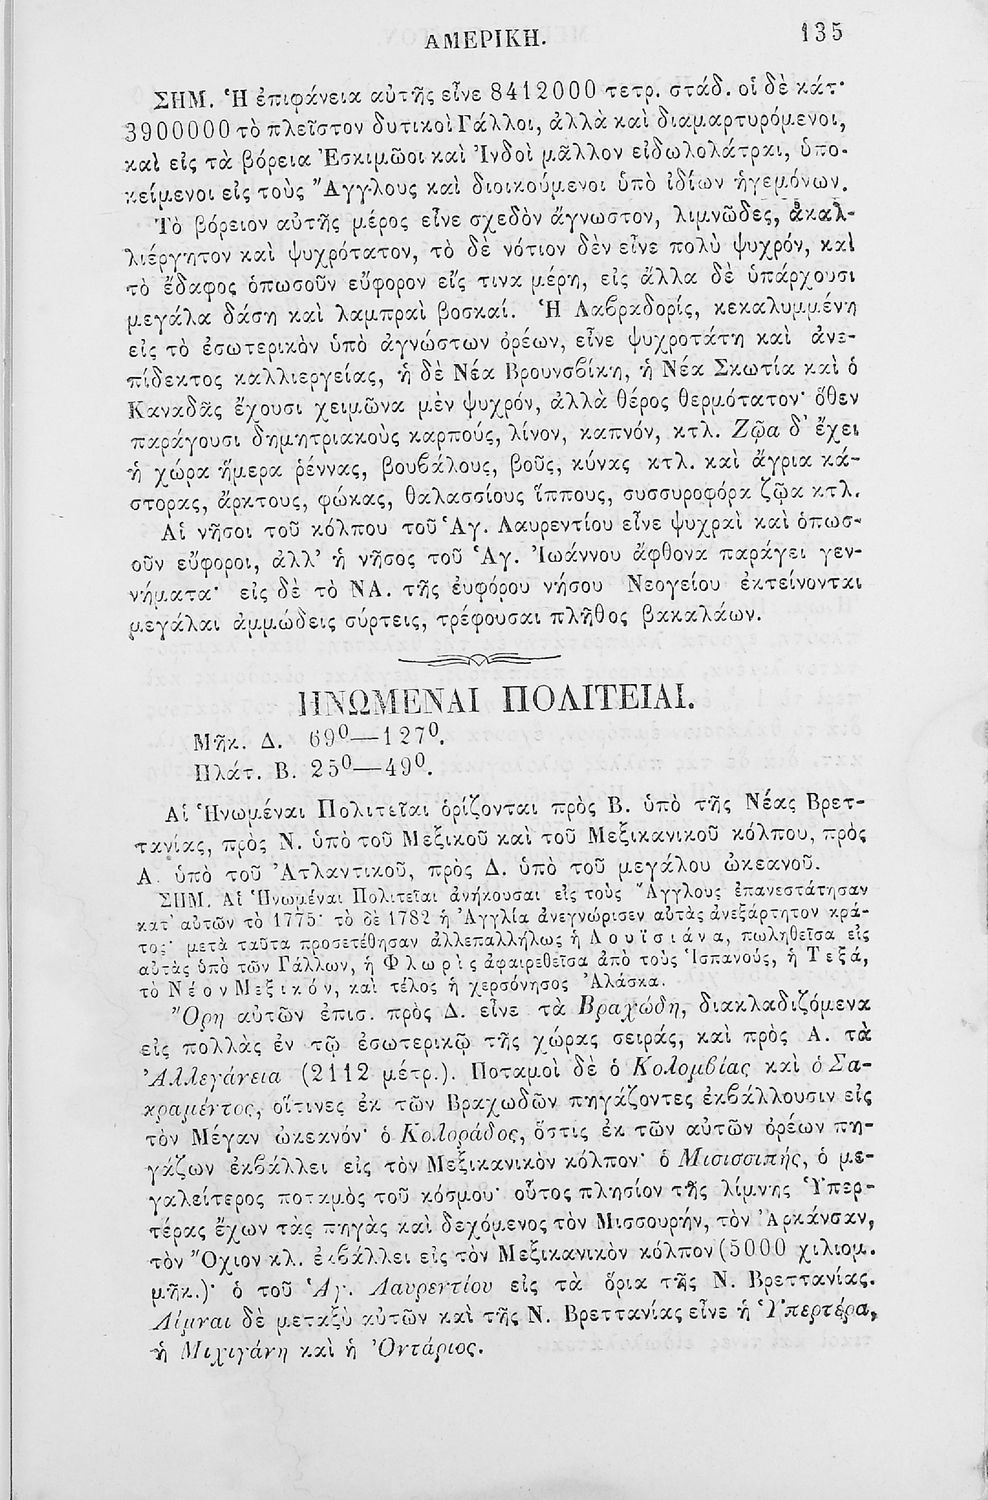 ΑΜΕΡΙΚΗ. 135
ΣΗΜ. Ἡ ἐπιφάνεια αὐτῆς εἶνε 8412000 τετρ. στάδ. οἱ δὲ κάτ·
3900000 τὸ πλεῖστον δυτικοὶ Γάλλοι, ἀλλὰ καὶ διαμαρτυρόμενοι,
καὶ εἰς τὰ βόρεια Ἐσκιμῶοι καὶ Ἰνδοὶ μᾶλλον εἰδωλολάτραι, ὑπο-
κείμενοι εἰς τοὺς Ἄγγλους καὶ διοικούμενοι ὑπὸ ἰδίων ἡγεμόνων.
Τὸ βόρειον αὐτῆς μέρος εἶνε σχεδὸν ἄγνωστον, λιμνῶδες, ἀκαλ-
λιέργητον καὶ ψυχρότατον, τὸ δὲ νότιον δὲν εἶνε πολὺ ψυχρόν, καὶ
τὸ ἔδαφος ὁπωσοῦν εὔφορον εἴς τινα μέρη, εἰς ἄλλα δὲ ὑπάρχουσι
μεγάλα δάση καὶ λαμπραὶ βοσκαί. Ἡ Λαβραδορίς, κεκαλυμμένη
εἰς τὸ ἐσωτερικὸν ὑπὸ ἀγνώστων ὀρέων, εἶνε ψυχροτάτη καὶ ἀνε-
πίδεκτος καλλιεργείας, ἡ δὲ Νέα Βρουνσβίκη, ἡ Νέα Σκωτία καὶ ὁ
Καναδᾶς ἔχουσι χειμῶνα μὲν ψυχρόν, ἀλλὰ θέρος θερμότατον· ὅθεν
παράγουσι δημητριακοὺς καρπούς, λίνον, καπνόν, κτλ. Ζῷα δ' ἔχει
ἡ χώρα ἥμερα ῥέννας, βουβάλους, βοῦς, κύνας κτλ. καὶ ἄγρια κά-
στορας, ἄρκτους, φώκας, θαλασσίους ἵππους, συσσυροφόρα ζῷα κτλ.
Αἱ νῆσοι τοῦ κόλπου τοῦ Ἁγ. Λαυρεντίου εἶνε ψυχραὶ καὶ ὁπωσ-
οῦν εὔφοροι, ἀλλ' ἡ νῆσος τοῦ Ἁγ. Ἰωάννου ἄφθονα παράγει γεν-
νήματα· εἰς δὲ τὸ ΝΑ. τῆς εὐφόρου νήσου Νεογείου ἐκτείνονται
μεγάλαι ἀμμώδεις σύρτεις, τρέφουσαι πλῆθος βακαλάων.
ΗΝΩΜΕΝΑΙ ΠΟΛΙΤΕΙΑΙ.
Μῆκ. Δ. 69⁰—127⁰.
Πλάτ. Β. 25⁰—49⁰.
Αἱ Ἡνωμέναι Πολιτεῖαι ὁρίζονται πρὸς Β. ὑπὸ τῆς Νέας Βρετ-
τανίας, πρὸς Ν. ὑπὸ τοῦ Μεξικοῦ καὶ τοῦ Μεξικανικοῦ κόλπου, πρὸς
Α. ὑπὸ τοῦ Ἀτλαντικοῦ, πρὸς Δ. ὑπὸ τοῦ μεγάλου ὠκεανοῦ.
ΣΗΜ. Αἱ Ἡνωμέναι Πολιτεῖαι ἀνήκουσαι εἰς τοὺς Ἄγγλους ἐπανεστάτησαν
κατ' αὐτῶν τὸ 1775· τὸ δὲ 1782 ἡ Ἀγγλία ἀνεγνώρισεν αὐτὰς ἀνεξάρτητον κρά-
τος· μετὰ ταῦτα προσετέθησαν ἀλλεπαλλήλως ἡ Λουϊσιάνα, πωληθεῖσα εἰς
αὐτὰς ὑπὸ τῶν Γάλλων, ἡ Φλωρὶς ἀφαιρεθεῖσα ἀπὸ τοὺς Ἱσπανούς, ἡ Τεξά,
τὸ Νέον Μεξικόν, καὶ τέλος ἡ χερσόνησος Ἀλάσκα.
Ὄρη αὐτῶν ἐπισ. πρὸς Δ. εἶνε τὰ Βραχώδη, διακλαδιζόμενα
εἰς πολλὰς ἐν τῷ ἐσωτερικῷ τῆς χώρας σειράς, καὶ πρὸς Α. τὰ
Ἀλλεγάνεια (2112 μέτρ.). Ποταμοὶ δὲ ὁ Κολομβίας καὶ ὁ Σα-
κραμέντος, οἵτινες ἐκ τῶν Βραχωδῶν πηγάζοντες ἐκβάλλουσιν εἰς
τὸν Μέγαν ὠκεανόν· ὁ Κολοράδος, ὅστις ἐκ τῶν αὐτῶν ὀρέων πη-
γάζων ἐκβάλλει εἰς τὸν Μεξικανικὸν κόλπον· ὁ Μισισσιπής, ὁ με-
γαλείτερος ποταμὸς τοῦ κόσμου· οὗτος πλησίον τῆς λίμνης Ὑπερ-
τέρας ἔχων τὰς πηγὰς καὶ δεχόμενος τὸν Μισσουρήν, τὸν Ἀρκάνσαν,
τὸν Ὄχιον κλ. ἐκβάλλει εἰς τὸν Μεξικανικὸν κόλπον (5000 χιλιομ.
μῆκ.)· ὁ τοῦ Ἁγ. Λαυρεντίου εἰς τὰ ὅρια τῆς Ν. Βρεττανίας.
Λίμναι δὲ μεταξὺ αὐτῶν καὶ τῆς Ν. Βρεττανίας εἶνε ἡ Ὑπερτέρα,
ἡ Μιχιγάνη καὶ ἡ Ὀντάριος.